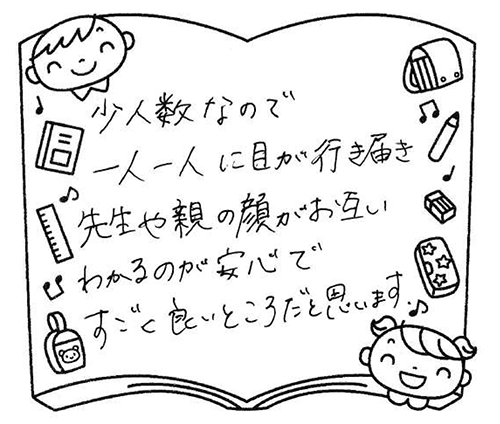 少人数なので
一人一人に目が行き届き
先生や親の顔がお互い
わかるのが安心で
すごく良いところだと思います。